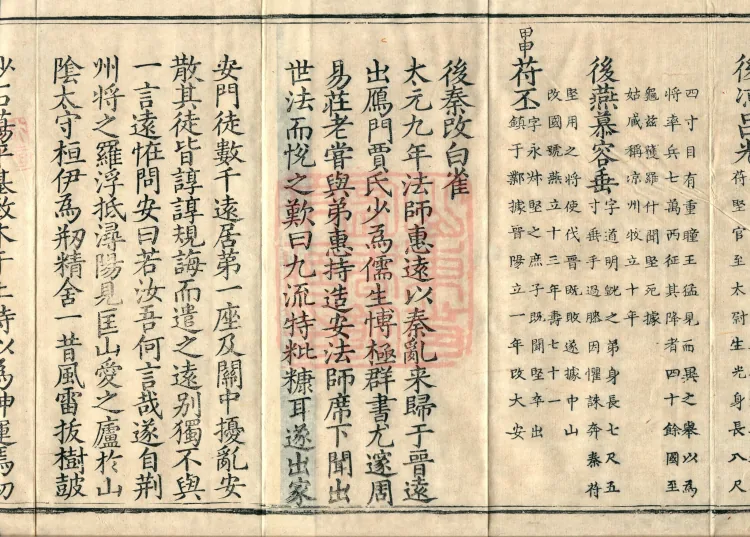 後涼呂光
苻堅官至太尉生光身長八尺
四寸目有重瞳王猛見而異之舉以為
將率兵七萬西征其降者四十餘國至
龜茲獲羅什聞堅死據
姑臧稱凉州牧立十年
後燕慕容垂
字道明皝之弟身長七尺五
寸垂手過膝因懼誅奔秦苻
堅用之將使伐晉既敗遂據中山
改國號燕立十三年壽七十一
甲申
苻丕
字永叔堅之庶子既聞堅卒出
鎮于鄴據晉陽立一年改大安
後秦改白雀
太元九年法師惠遠以秦亂来歸于晉遠
出鴈門賈氏少為儒生博極群書尤邃周
易莊老甞與弟惠持造安法師席下聞出
世法而悅之歎曰九流特粃糠耳遂出家
安門徒數千遠居第一座及關中擾亂安
散其徒皆諄諄規誨而遣之遠别獨不與
一言遠恠問安曰若汝吾何言哉遂自荆
州將之羅浮抵潯陽見匡山愛之廬於山
陰太守桓伊為刱精舍一昔風雷拔樹皷
沙石蕩平基致木于上時以為神運焉初